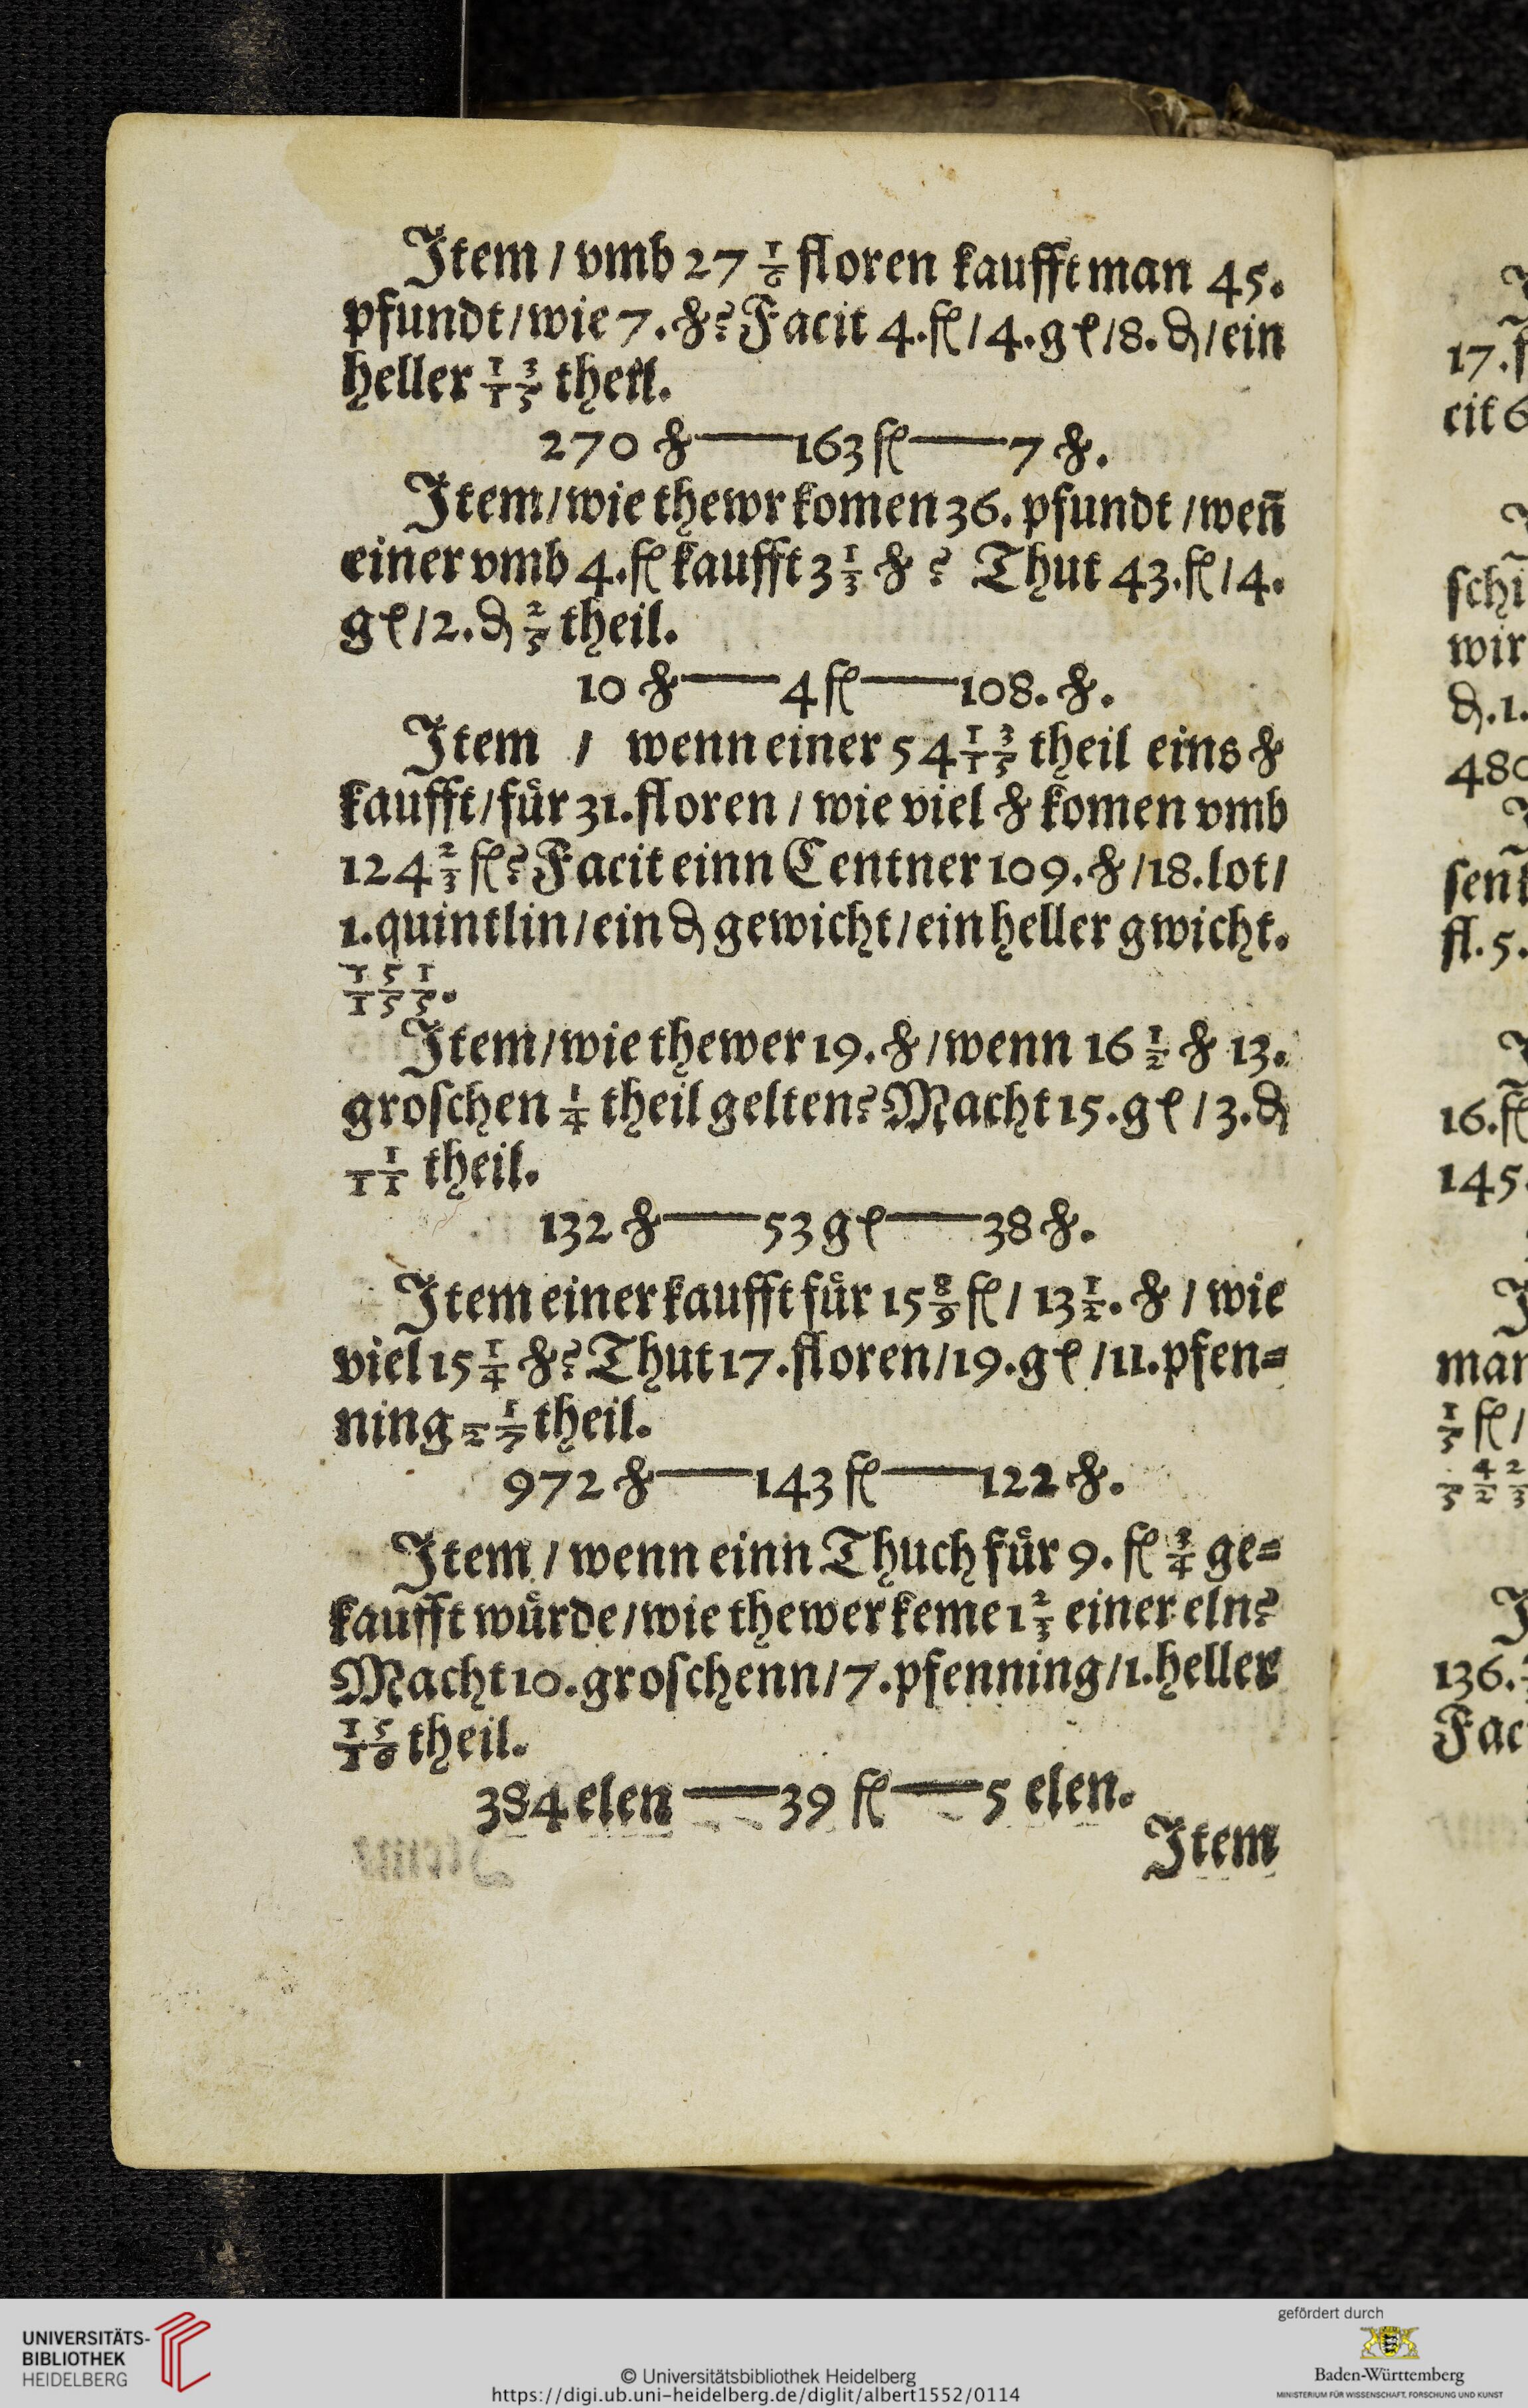 Item / vmb 27 1/6 floren kaufft man 45.
pfundt / wie 7. ℔? Facit 4. fl / 4. gl / 8. ₰ / ein
heller 1/1 3/5 theil.
270 ℔ — 163 fl — 7 ℔.
Item / wie thewr komen 36. pfundt / weñ
einer vmb 4. fl kaufft 3 1/3 ℔? Thut 43. fl / 4.
gl / 2. ₰ 2/5 theil.
10 ℔ — 4 fl — 108. ℔.
Item / wenn einer 54 1/1 3/5 theil eins ℔
kaufft / für 31. floren / wie viel ℔ komen vmb
124 2/3 fl? Facit einn Centner 109. ℔ / 18. lot /
1. quintlin / ein ₰ gewicht / ein heller gwicht.
1/1 5/5 1/5.
Item / wie thewer 19. ℔ / wenn 16 1/2 ℔ 13.
groschen 1/4 theil gelten? Macht 15. gl / 3. ₰
/1 1/1 theil.
132 ℔ — 53 gl — 38 ℔.
Item einer kaufft für 15 8/9 fl / 13 1/2. ℔ / wie
viel 15 1/4 ℔? Thut 17. floren / 19. gl / 11. pfen=
ning /2 1/7 theil.
972 ℔ — 143 fl — 122 ℔.
Item / wenn einn Thuch für 9. fl 3/4 ge=
kaufft würde / wie thewer keme 1 2/3 einer eln?
Macht 10. groschenn / 7. pfenning / 1. heller
1/1 5/6 theil.
384 elen — 39 fl — 5 elen.
Item
17. f
cit 6
schi
wir
₰. 1.
480
sen
fl. 5.
16. fl
145.
man
1/5 fl /
/5 4/2 2/3
136.
Fac
UNIVERSITÄTS-
BIBLIOTHEK
HEIDELBERG
© Universitätsbibliothek Heidelberg
https://digi.ub.uni-heidelberg.de/diglit/albert1552/0114
gefördert durch
Baden-Württemberg
MINISTERIUM FÜR WISSENSCHAFT, FORSCHUNG UND KUNST